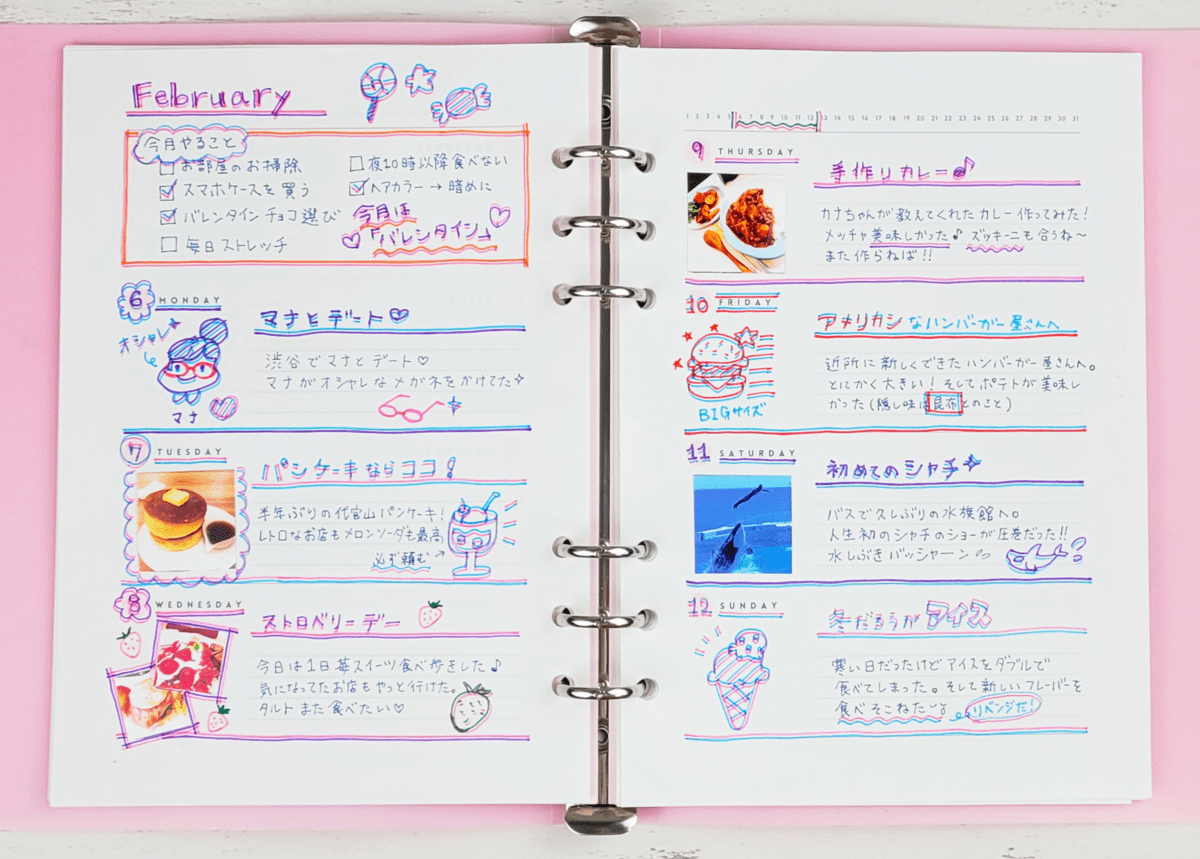 February
今月やること
□ お部屋のお掃除
☑ スマホケースを買う
☑ バレンタインチョコ選び
□ 毎日ストレッチ
□ 夜10時以降食べない
☑ ヘアカラー→暗めに
今月は
「バレンタイン」
6 MONDAY
オシャレ
マナ
マナとデート♡
渋谷でマナとデート♡
マナがオシャレなメガネをかけてた
7 TUESDAY
パンケーキならココ!
半年ぶりの代官山パンケーキ!
レトロなお店もメロンソーダも最高
必ず頼む→
8 WEDNESDAY
ストロベリーデー
今日は1日苺スイーツ食べ歩きした♪
気になってたお店もやっと行けた。
タルトまた食べたい♡
1 2 3 4 5 6 7 8 9 10 11 12 13 14 15 16 17 18 19 20 21 22 23 24 25 26 27 28 29 30 31
9 THURSDAY
手作りカレー♪
カナちゃんが教えてくれたカレー作ってみた!
メッチャ美味しかった♪ ズッキーニも合うね〜
また作らねば!!
10 FRIDAY
BIGサイズ
アメリカンなハンバーガー屋さんへ
近所に新しくできたハンバーガー屋さんへ。
とにかく大きい!そしてポテトが美味し
かった(隠し味は昆布とのこと)
11 SATURDAY
初めてのシャチ
バスで久しぶりの水族館へ。
人生初のシャチのショーが圧巻だった!!
水しぶきバッシャーン
12 SUNDAY
冬だろうがアイス
寒い日だったけどアイスをダブルで
食べてしまった。そして新しいフレーバーを
食べそこねた リベンジだ!